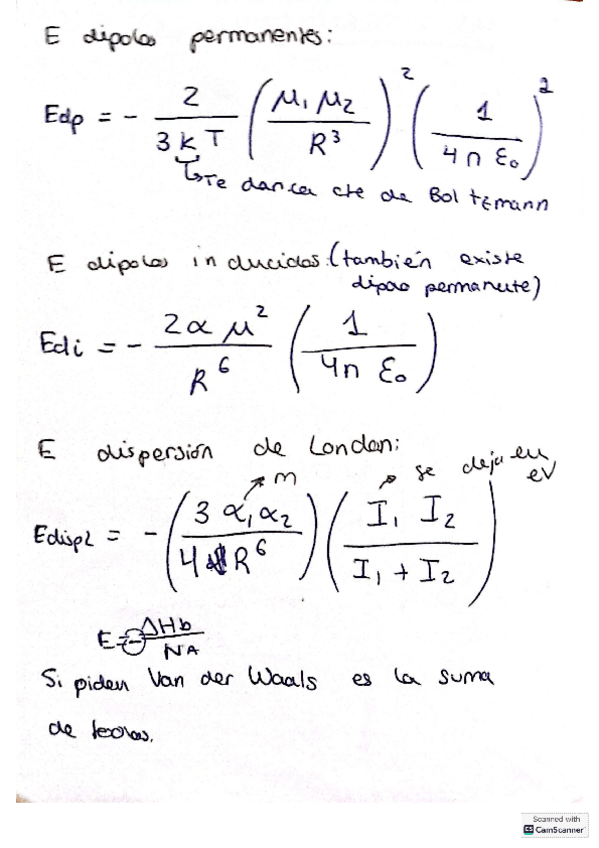 E dipolos permanentes:
Edp = - 2 / 3kT (μ₁ μ₂ / R³)² (1 / 4π ε₀)²
↳ Te dan la cte de Boltzmann
E dipolos inducidos (también existe
dipolo permanente)
Edi = - 2α μ² / R⁶ (1 / 4π ε₀)
E dispersión de London:
→ m → se deja en eV
EdispL = - (3 α₁ α₂ / 4 R⁶) (I₁ I₂ / I₁ + I₂)
E = - ΔHb / NA
Si piden Van der Waals es la suma
de todas.
Scanned with
CS CamScanner